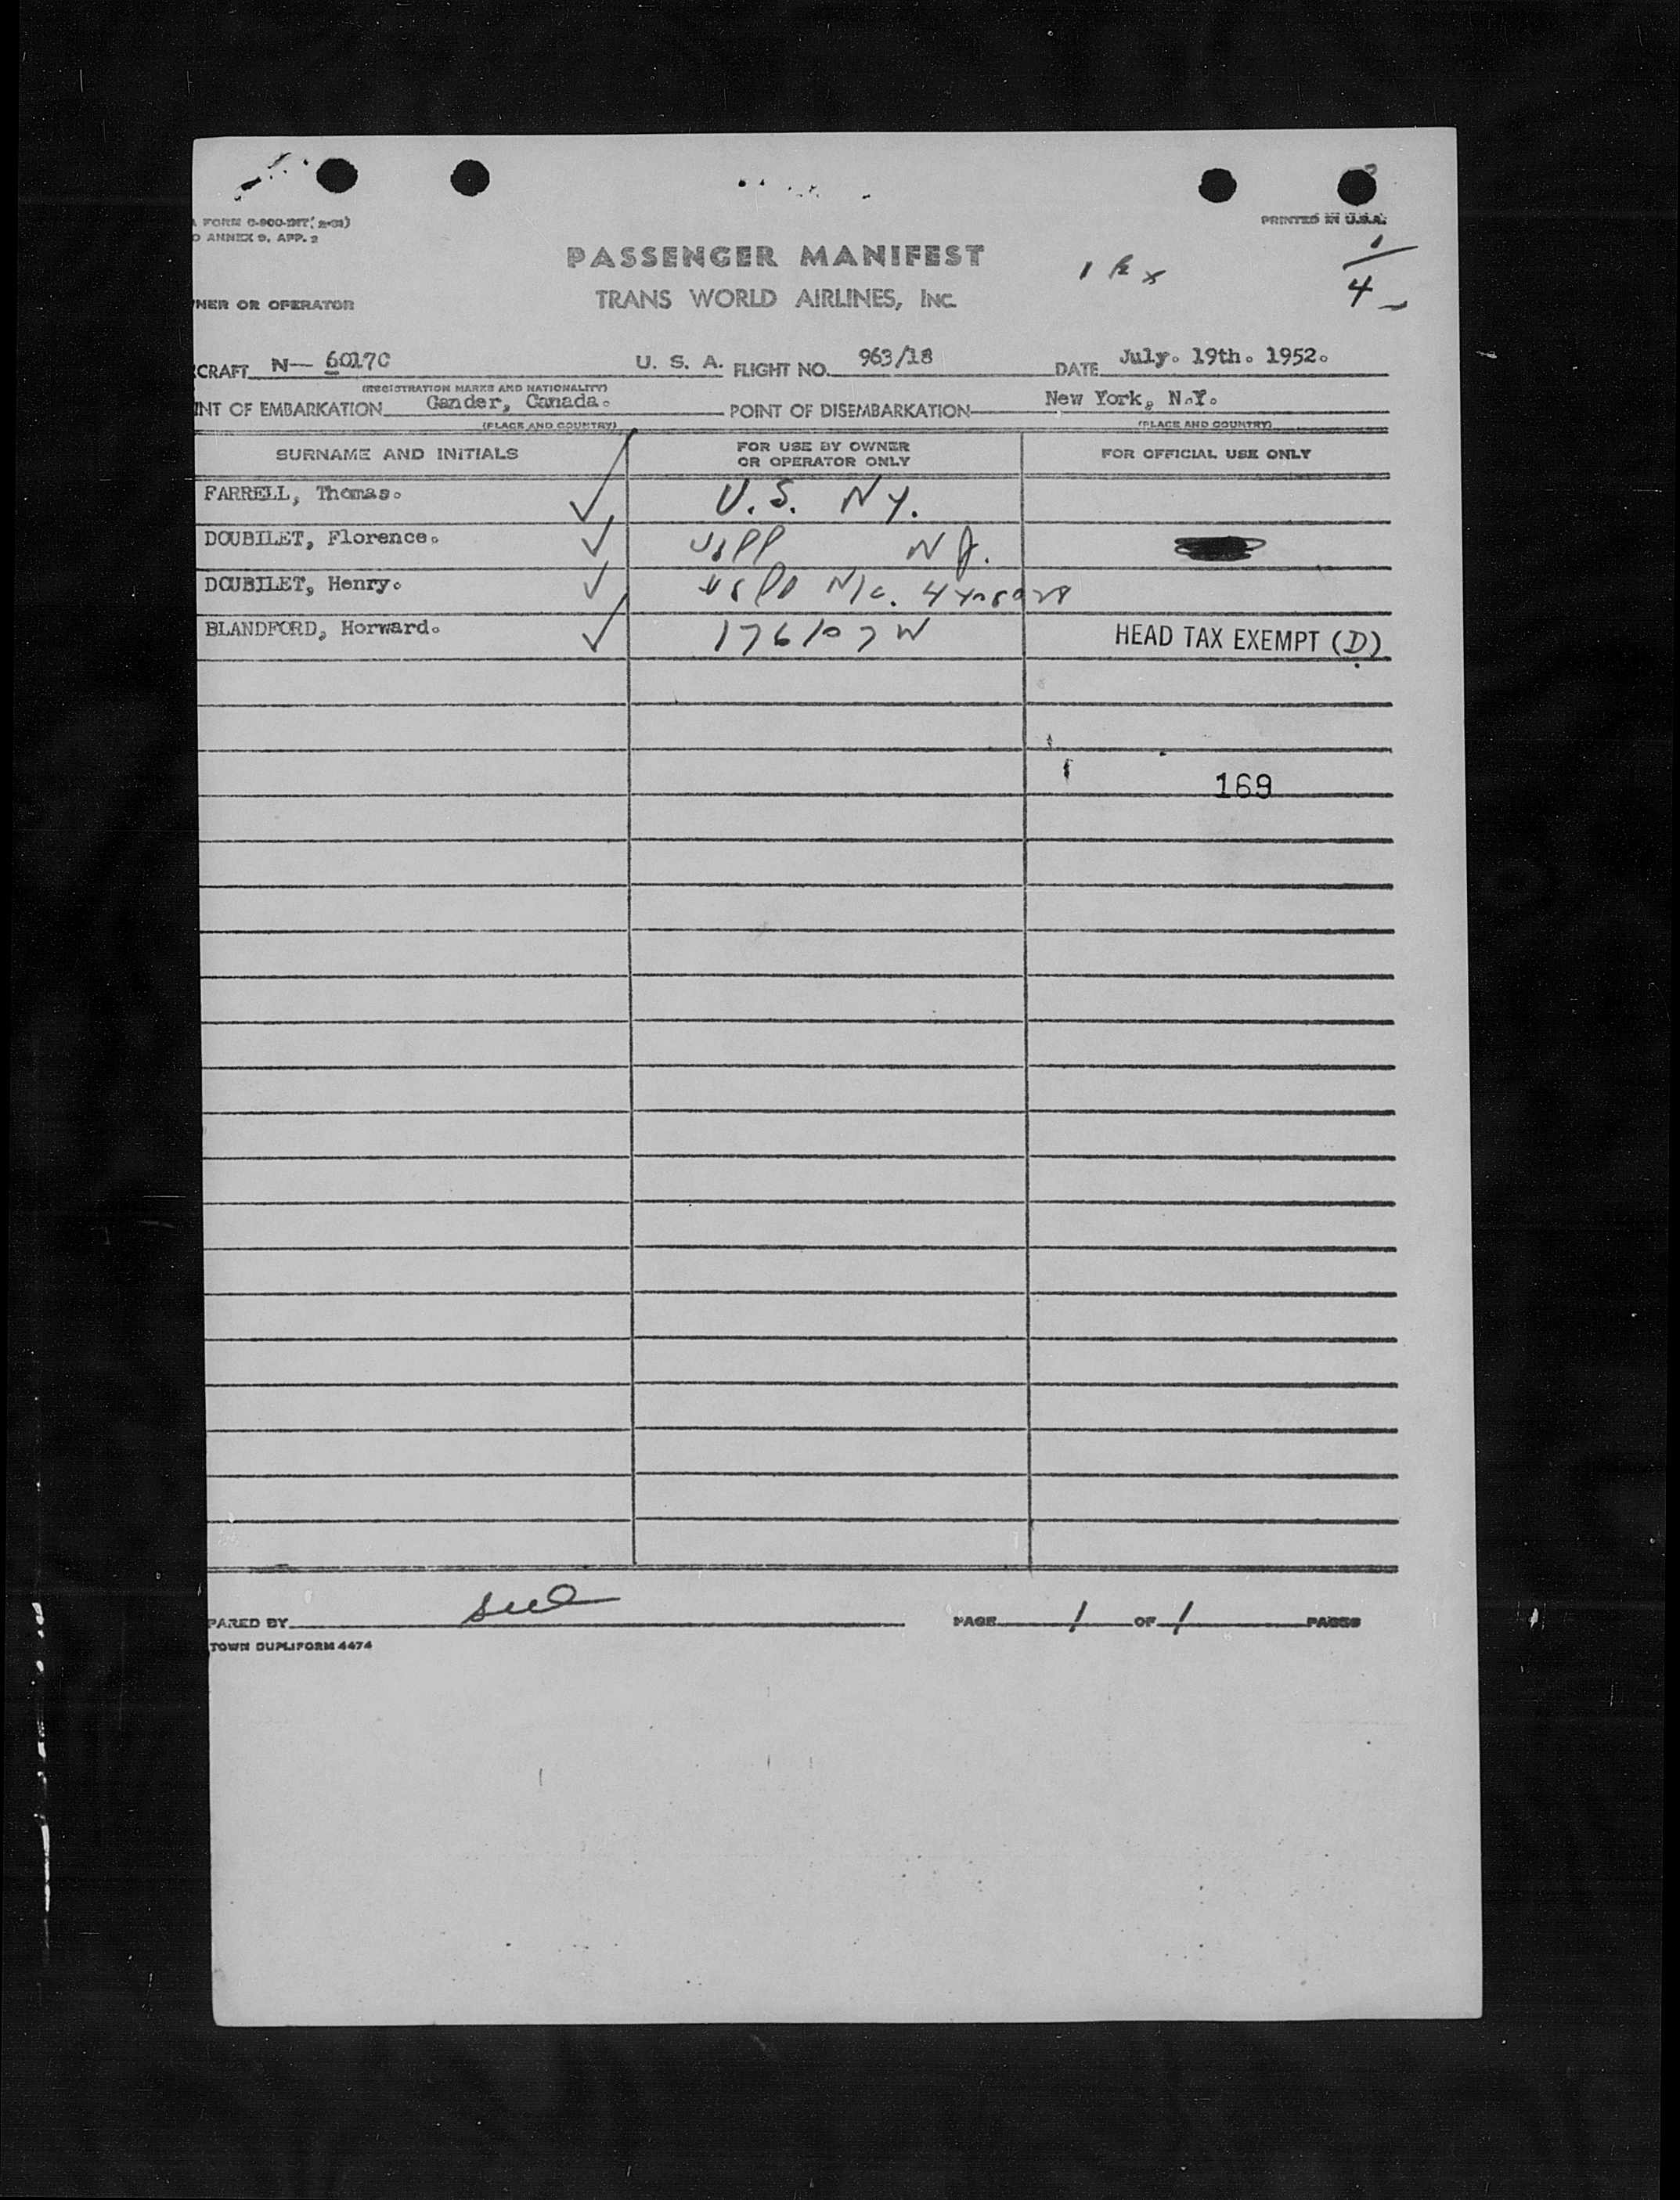 FORM 0-900-INT (2-51)
ANNEX 9, APP. 2
PRINTED IN U.S.A.
PASSENGER MANIFEST
TRANS WORLD AIRLINES, INC.
1
4
NER OR OPERATOR
CRAFT N— 6017C U. S. A. FLIGHT NO. 963/18 DATE July. 19th. 1952.
(REGISTRATION MARKS AND NATIONALITY)
INT OF EMBARKATION Gander, Canada. POINT OF DISEMBARKATION New York, N.Y.
(PLACE AND COUNTRY) (PLACE AND COUNTRY)
SURNAME AND INITIALS FOR USE BY OWNER OR OPERATOR ONLY FOR OFFICIAL USE ONLY
FARRELL, Thomas. ✓ U.S. NY.
DOUBILET, Florence. ✓ USPP NJ.
DOUBILET, Henry. ✓ USPP
BLANDFORD, Horward. ✓ 176107W HEAD TAX EXEMPT (D)
169
PARED BY
PAGE 1 OF 1 PAGES
TOWN DUPLIFORM 4474